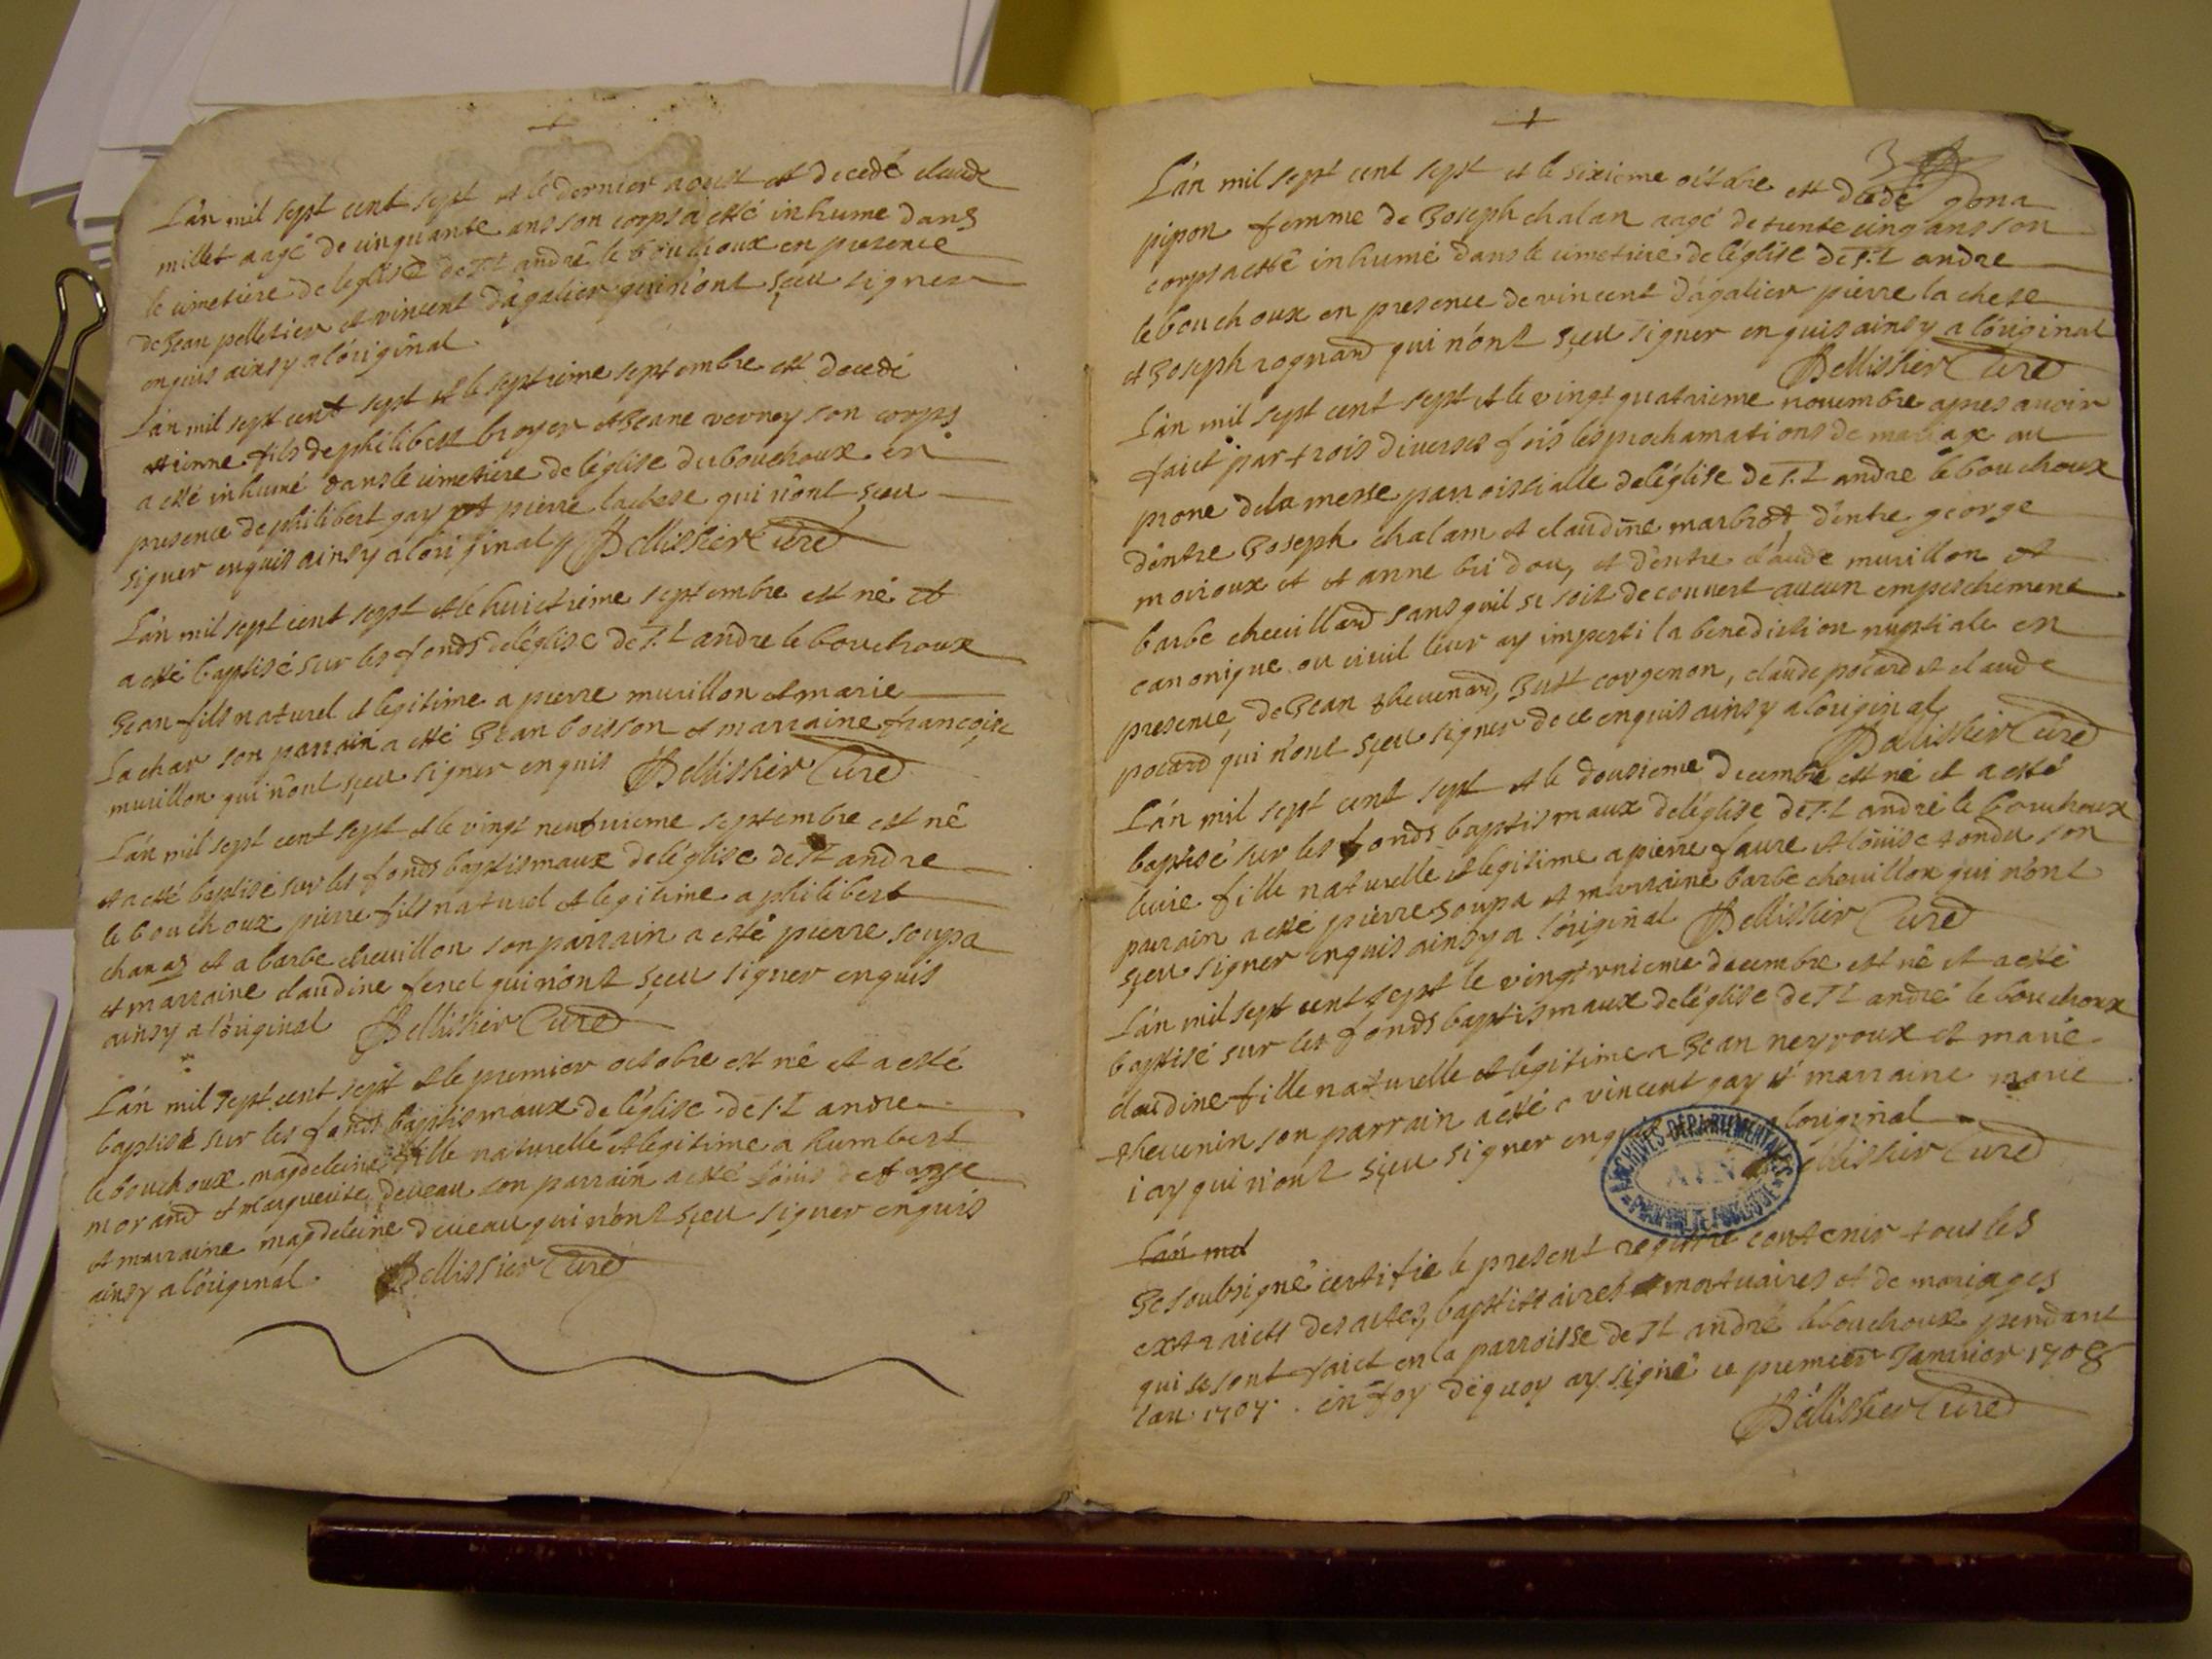 L'an mil sept cent sept et le dernier aoust est decedé claude
millet aagé de cinquante ans son corps a esté inhume dans
le cimetiere de leglise de St andré le bouchoux en presence
de Jean pelletier et vincent d'agalier qui n'ont sçeu signer
enquis ainsy a l'original
L'an mil sept cent sept et le septieme septembre est decedé
etienne fils de philibert broyer et Jeane verney son corps
a esté inhumé dans le cimetiere de l'église du bouchoux en
presence de philibert gay et pierre lachese qui n'ont sçeu
signer enquis ainsy a l'original Pellissier Curé
L'an mil sept cent sept et le huictieme septembre est né et
a esté baptisé sur les fonds de léglise de St andre le bouchoux
Jean fils naturel et legitime a pierre murillon et marie
Lachar son parrain a esté Jean boisson et marraine françoise
murillon qui n'ont sçeu signer enquis Pellissier Curé
L'an mil sept cent sept et le vingt neufvieme septembre est né
et a esté baptisé sur les fonds baptismaux de léglise de St andre
le bouchoux pierre fils naturel et legitime a philibert
et a barbe chevillon son parrain a esté pierre soupa
et marraine claudine ferel qui n'ont sçeu signer enquis
ainsy a l'original Pellissier Curé
L'an mil sept cent sept et le premier octobre est né et a esté
baptisé sur les fonds baptismaux de léglise de St andre
le bouchoux magdeleine fille naturelle et legitime a humbert
morand et marguerite deveau son parrain a esté Louis
et marraine magdeleine deveau qui n'ont sçeu signer enquis
ainsy a l'original Pellissier Curé
3
L'an mil sept cent sept et le sixieme octobre est decedé
pipon femme de Joseph chalan aagé de trente cinq ans son
corps a esté inhumé dans le cimetiere de l'église de St andre
le bouchoux en presence de vincent d'agalier pierre la chese
et Joseph rognard qui n'ont sçeu signer enquis ainsy a l'original
Pellissier Curé
L'an mil sept cent sept et le vingt quatrieme novembre apres avoir
faict par trois diverses fois les proclamations de mariage au
prone de la messe parroissialle de léglise de St andre le bouchoux
d'entre Joseph chalam et claudine marbrot d'entre george
moiroux et et anne bridou, et d'entre claude murillon et
barbe chevillard sans quil se soit decouvert aucun empeschement
canonique ou civil leur ay imparti la benediction nuptiale en
presence, de Jean thevenard, Just corgenon, claude pocard et claude
pocard qui n'ont sçeu signer de ce enquis ainsy a l'original
Pellissier Curé
L'an mil sept cent sept et le dousieme decembre est né et a esté
baptisé sur les fonds baptismaux de léglise de St andre le bouchoux
fille naturelle et legitime a pierre faure et Loüise tondu son
parrain a esté pierre soupa et marraine barbe chevillon qui n'ont
sçeu signer enquis ainsy a l'original Pellissier Curé
L'an mil sept cent sept le vingt unieme decembre est né et a esté
baptisé sur les fonds baptismaux de léglise de St andre le bouchoux
claudine fille naturelle et legitime a Jean neyroux et marie
thevenin son parrain a esté vincent gay et marraine marie
jay qui n'ont sçeu signer enquis l'original
Pellissier Curé
ARCHIVES DÉPARTEMENTALES
AIN
L'an mil
Je soubsigné certifie le present registre contenir tous les
extraicts des actes, baptistaires mortuaires et de mariages
qui se sont faict en la parroisse de St andré le bouchoux pendant
l'an 1707. en foy dequoy ay signé ce premier Janvier 1708
Pellissier Curé